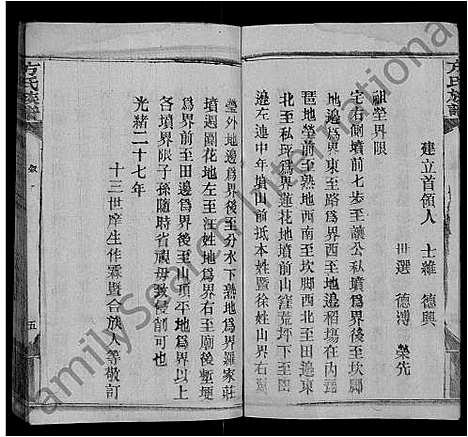 方氏族譜
建立首領人
士維 德興
世選 德溥 榮先
祖塋界限
宅右側墳前七步至讓公私墳為界後至坎腳
地邊為界東至路為界西至地邊稻場在內至
琶地塋前至熟地西南至坎腳西北至田邊東
北至私所為界蓮花地墳前山窪荒坪下至田
邊左連中年墳山前抵本姓暨徐姓山界右
塋外地邊為界後至分水下熟地為界羅家莊
墳週圍花地左至汪姓地為界右至廟後塹埂
為界前至田邊為界後至山頂平地為界以上
各墳界限子孫隨時省視毋致侵削可也
光緒二十七年
十三世庠生作霖暨合族人等敬訂
方氏族譜
敘
五
FamilySearch International